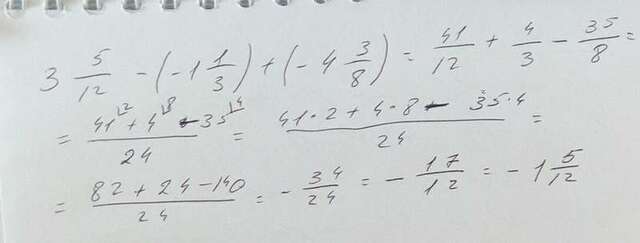 3 5/12 - (-1 1/3) + (-4 3/8) = 41/12 + 4/3 - 35/8 =
= (41^{12} + 4^{18} - 35^{14})/24 = (41·2 + 4·8 - 35·4)/24 =
= (82 + 24 - 140)/24 = - 34/24 = - 17/12 = - 1 5/12